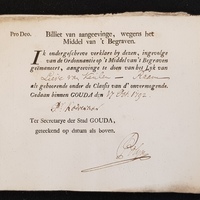 Pro Deo. Billiet van aangeevinge, wegens het
Middel van 't Begraven.
Ik ondergeschreve verklare by dezen, ingevolge
van de Ordonnantie op 't Middel van 't Begraven
geëmaneert, aangeevinge te doen van het Lyk van
als gehoorende onder de Classis van d' onvermogende.
Gedaan binnen GOUDA den 17 Dec. 1792
Ter Secretarye der Stad GOUDA,
geteekend op datum als boven.